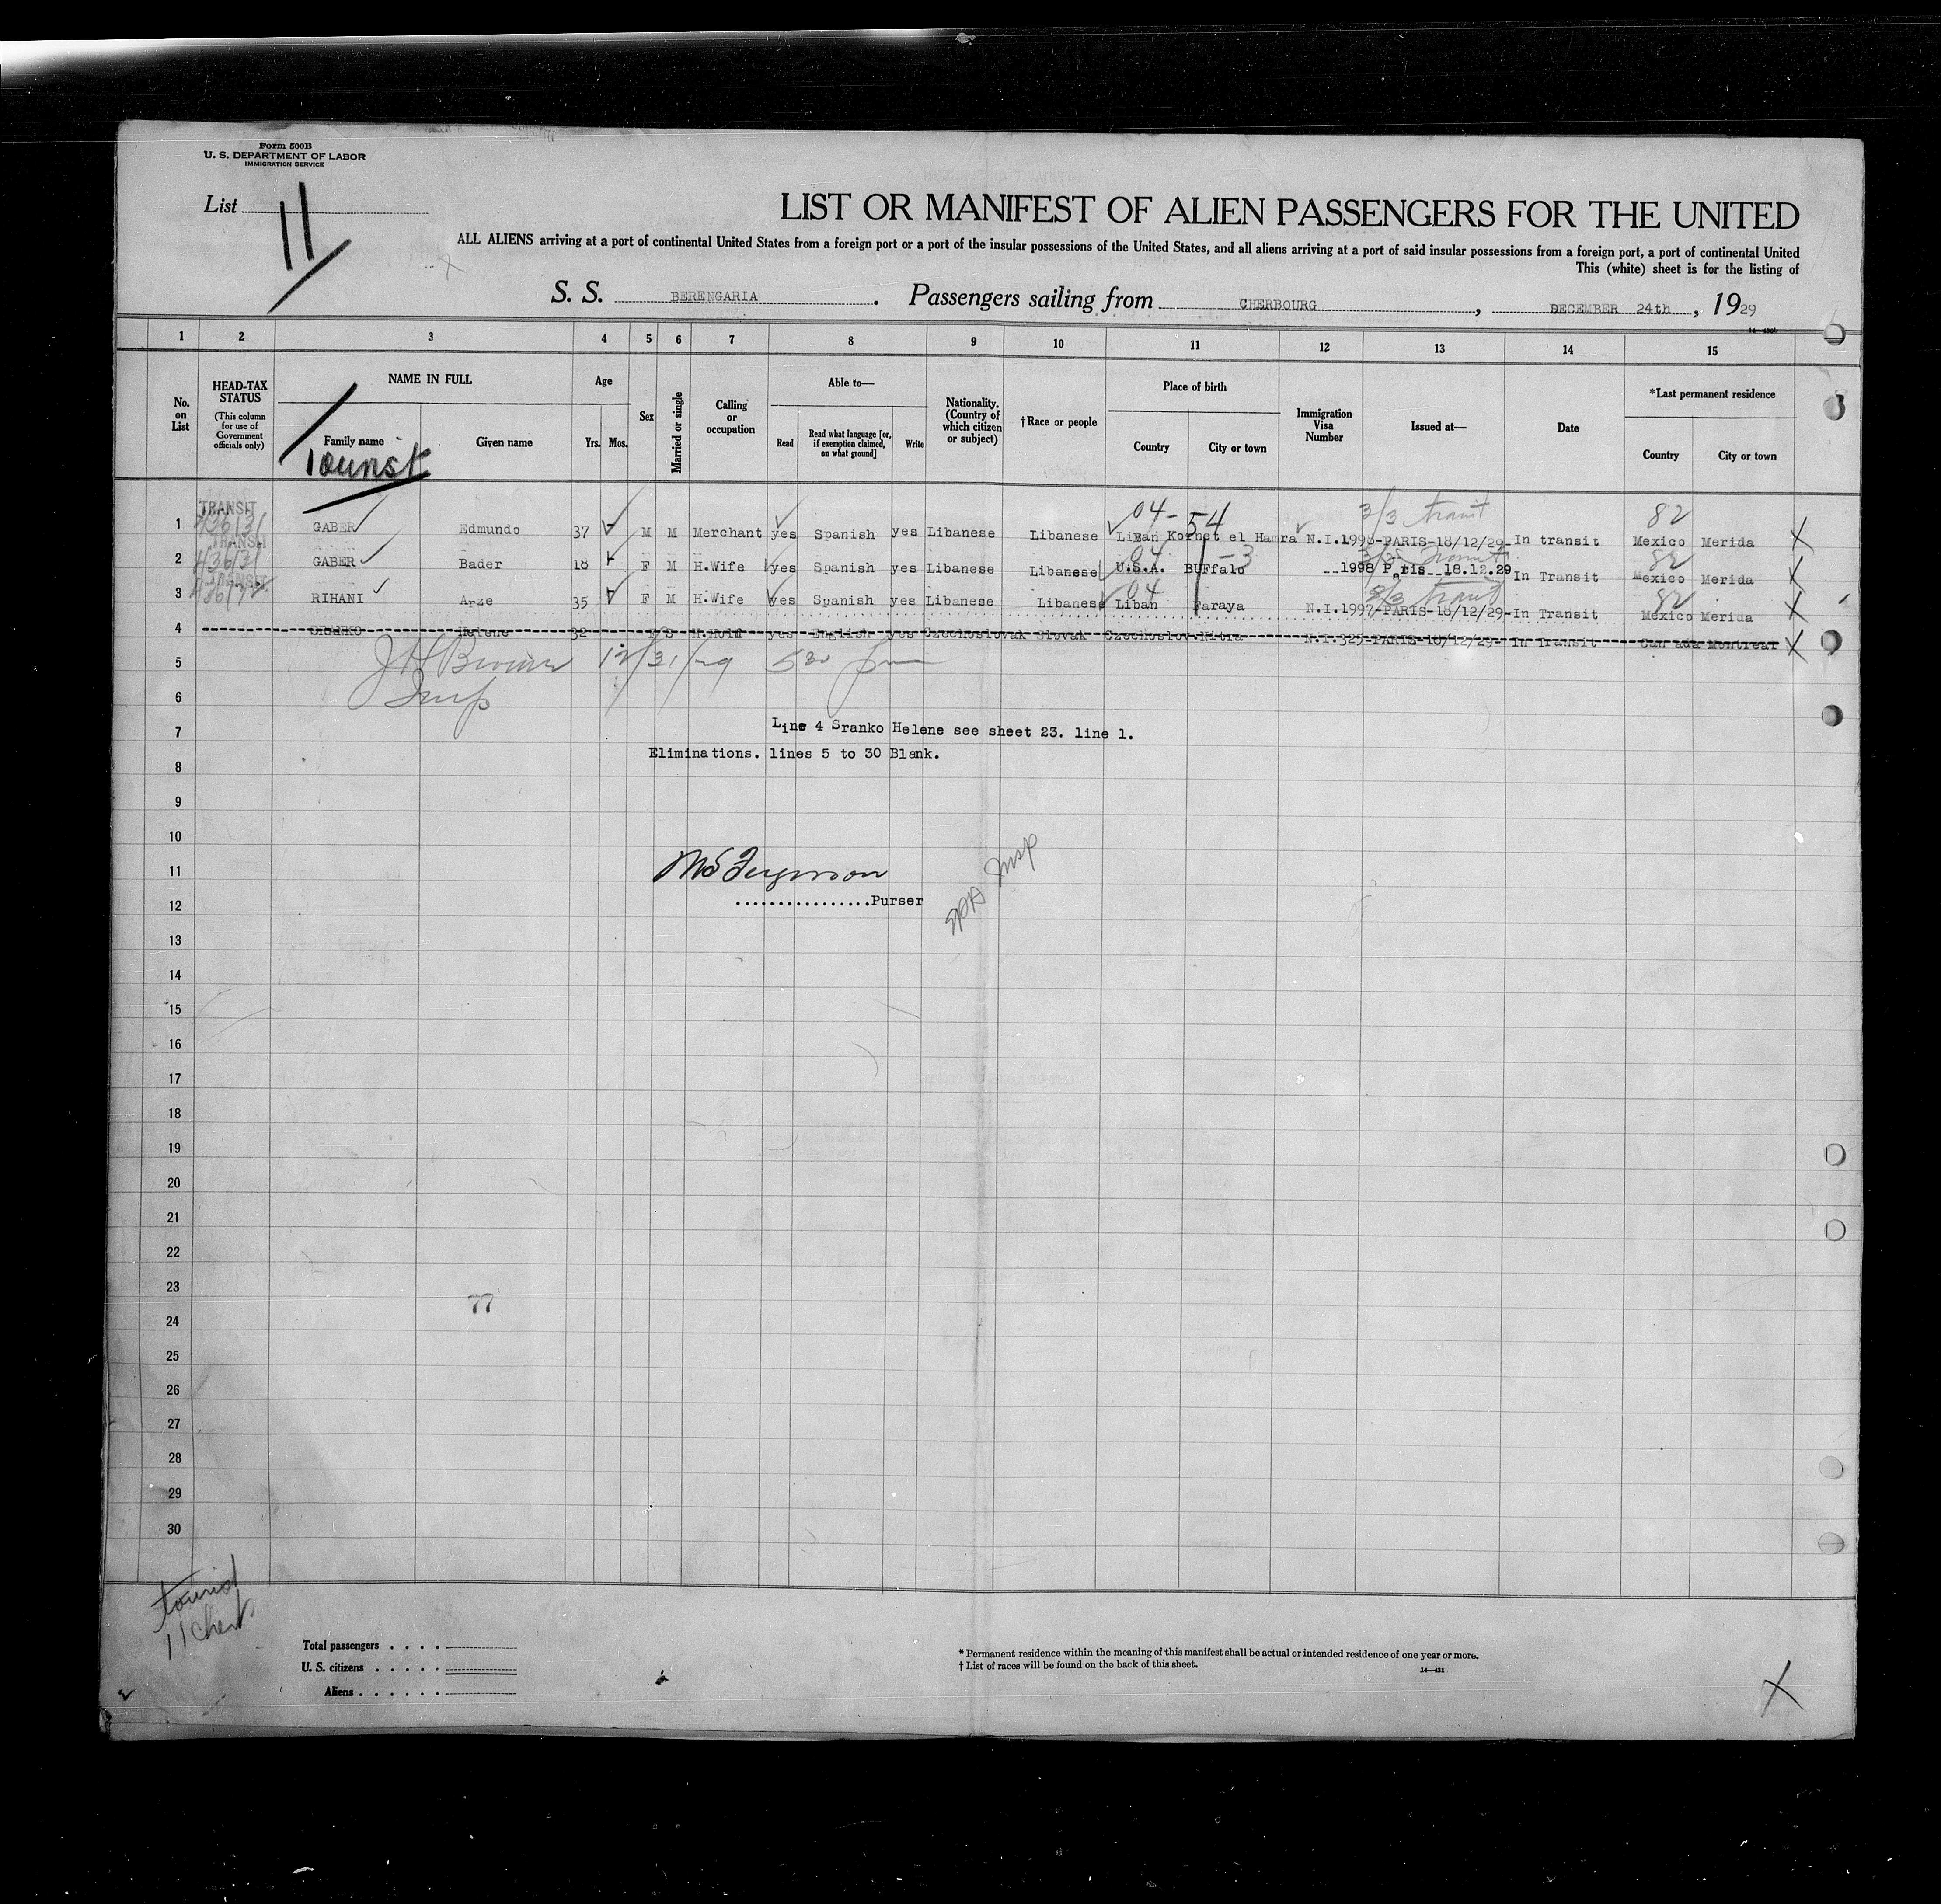 Form 500B
U. S. DEPARTMENT OF LABOR
IMMIGRATION SERVICE
List 11
LIST OR MANIFEST OF ALIEN PASSENGERS FOR THE UNITED
ALL ALIENS arriving at a port of continental United States from a foreign port or a port of the insular possessions of the United States, and all aliens arriving at a port of said insular possessions from a foreign port, a port of continental United
This (white) sheet is for the listing of
S. S. BERENGARIA . Passengers sailing from CHERBOURG , DECEMBER 24th , 1929
1 2 3 4 5 6 7 8 9 10 11 12 13 14 15
No. on List
HEAD-TAX STATUS
(This column for use of Government officials only)
NAME IN FULL
Family name
Given name
Tourist
Age
Yrs. Mos.
Sex
Married or single
Calling or occupation
Able to—
Read
Read what language [or, if exemption claimed, on what ground]
Write
Nationality. (Country of which citizen or subject)
†Race or people
Place of birth
Country
City or town
Immigration Visa Number
Issued at—
Date
*Last permanent residence
Country
City or town
TRANSIT 04-54 3/3 transit 82
1 GABER Edmundo 37 M M Merchant yes Spanish yes Libanese Libanese Liban Kornet el Hamra N.I.1996-PARIS-18/12/29-In transit Mexico Merida X
TRANSIT 04 -3 82
2 GABER Bader 18 F M H.Wife yes Spanish yes Libanese Libanese U.S.A. BUffalo 1998 Paris 18.12.29 In Transit Mexico Merida X
TRANSIT 04 3/3 transit 82
3 RIHANI Arze 35 F M H.Wife yes Spanish yes Libanese Libanese Liban Faraya N.I.1997-PARIS-18/12/29-In Transit Mexico Merida X
4 SRANKO Helene 32 yes English yes Czechoslovak Slovak Czechoslov.Nitra N.I.325-PARIS-18/12/29- In Transit Canada Montreal X
5 12/31/29 530 pm
6 Insp
7 Line 4 Sranko Helene see sheet 23. line 1.
Eliminations. lines 5 to 30 Blank.
8
9
10
11
................Purser
Insp
12
13
14
15
16
17
18
19
20
21
22
23
77
24
25
26
27
28
29
30
tourist
11 Cher
Total passengers . . . .
U. S. citizens . . . . .
Aliens . . . . . .
* Permanent residence within the meaning of this manifest shall be actual or intended residence of one year or more.
† List of races will be found on the back of this sheet.
14—431
X